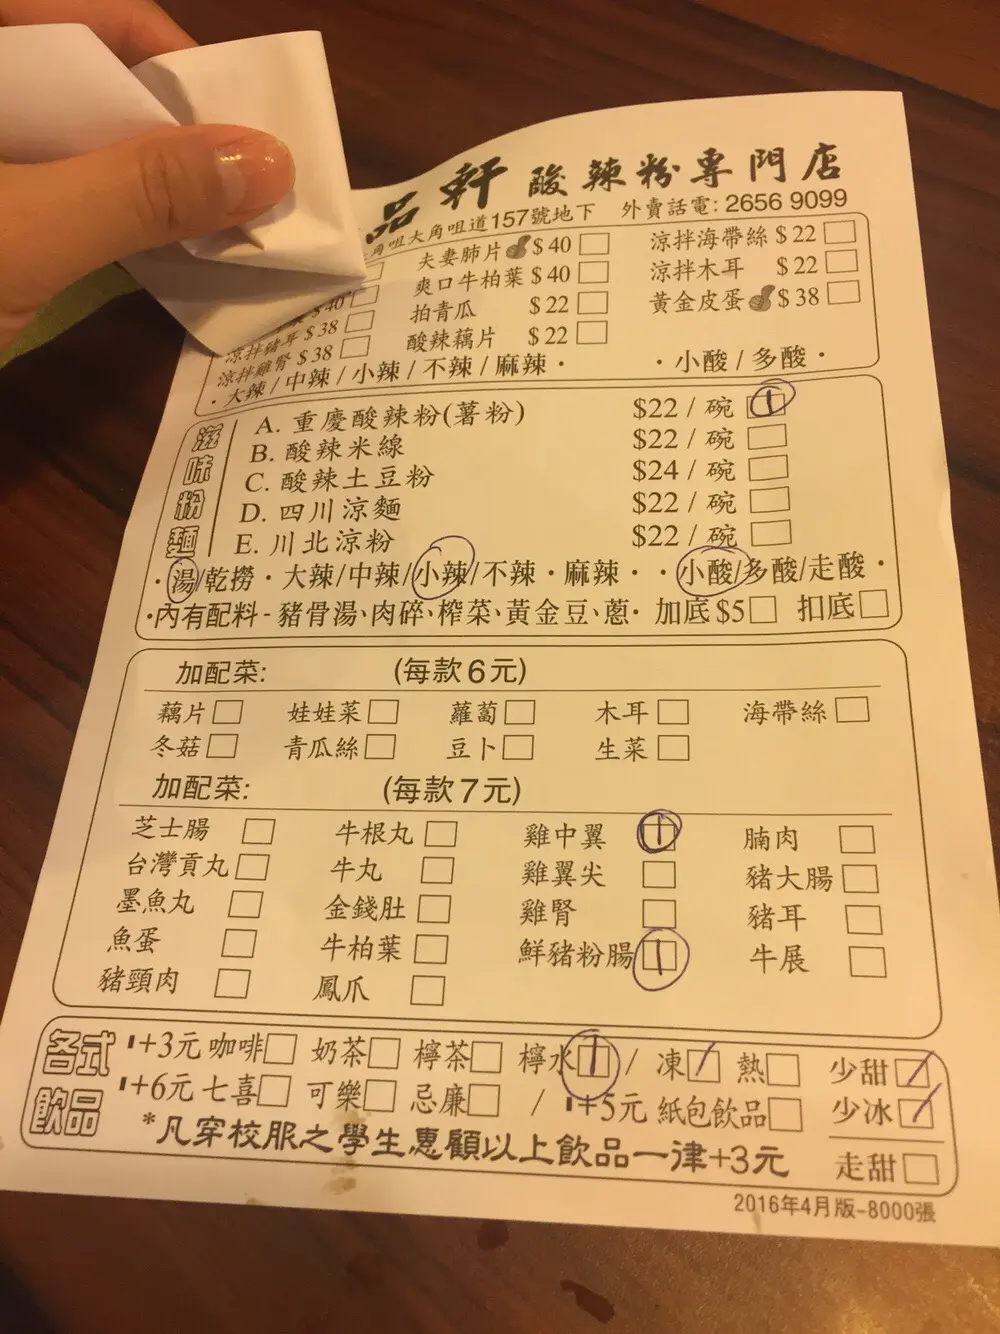 品軒 酸辣粉專門店
角咀大角咀道157號地下 外賣話電: 2656 9099
夫妻肺片 $40 涼拌海帶絲 $22
爽口牛柏葉 $40 涼拌木耳 $22
$40 拍青瓜 $22 黃金皮蛋 $38
涼拌豬耳 $38 酸辣藕片 $22
涼拌雞腎 $38
·大辣/中辣/小辣/不辣/麻辣· ·小酸/多酸·
滋味粉麵
A. 重慶酸辣粉(薯粉) $22/碗 1
B. 酸辣米線 $22/碗
C. 酸辣土豆粉 $24/碗
D. 四川涼麵 $22/碗
E. 川北涼粉 $22/碗
·湯/乾撈·大辣/中辣/小辣/不辣·麻辣··小酸/多酸/走酸·
·內有配料-豬骨湯、肉碎、榨菜、黃金豆、蔥· 加底$5 扣底
加配菜: (每款6元)
藕片 娃娃菜 蘿蔔 木耳 海帶絲
冬菇 青瓜絲 豆卜 生菜
加配菜: (每款7元)
芝士腸 牛根丸 雞中翼 1 腩肉
台灣貢丸 牛丸 雞翼尖 豬大腸
墨魚丸 金錢肚 雞腎 豬耳
魚蛋 牛柏葉 鮮豬粉腸 1 牛展
豬頸肉 鳳爪
各式飲品
+3元 咖啡 奶茶 檸茶 檸水 1 / 凍 熱 少甜
+6元 七喜 可樂 忌廉 / +5元 紙包飲品 少冰
*凡穿校服之學生惠顧以上飲品一律+3元 走甜
2016年4月版-8000張